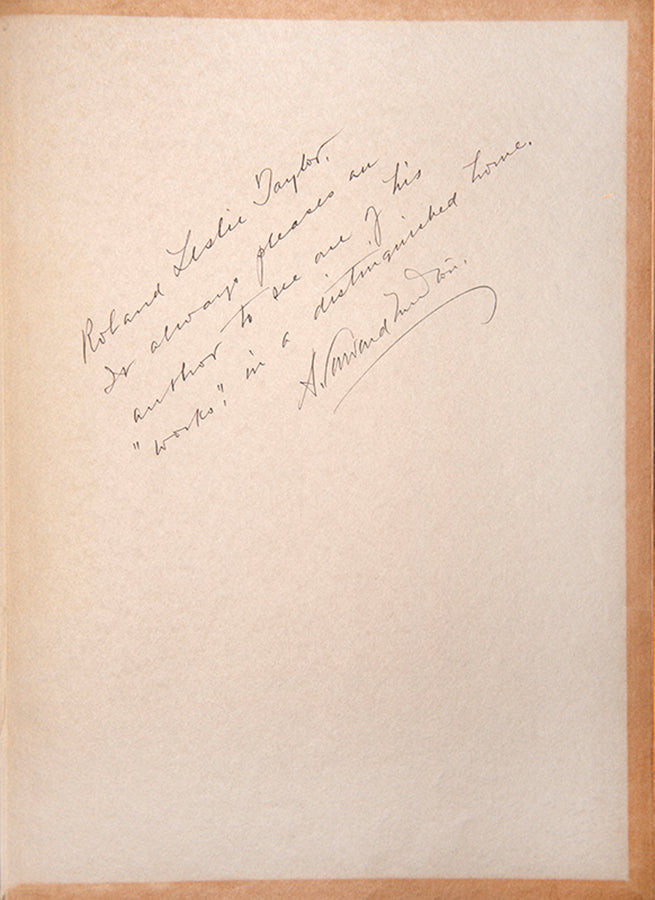 Roland Leslie Taylor.
It always pleases an
author to see one of his
"works", in a distinguished home.
A.